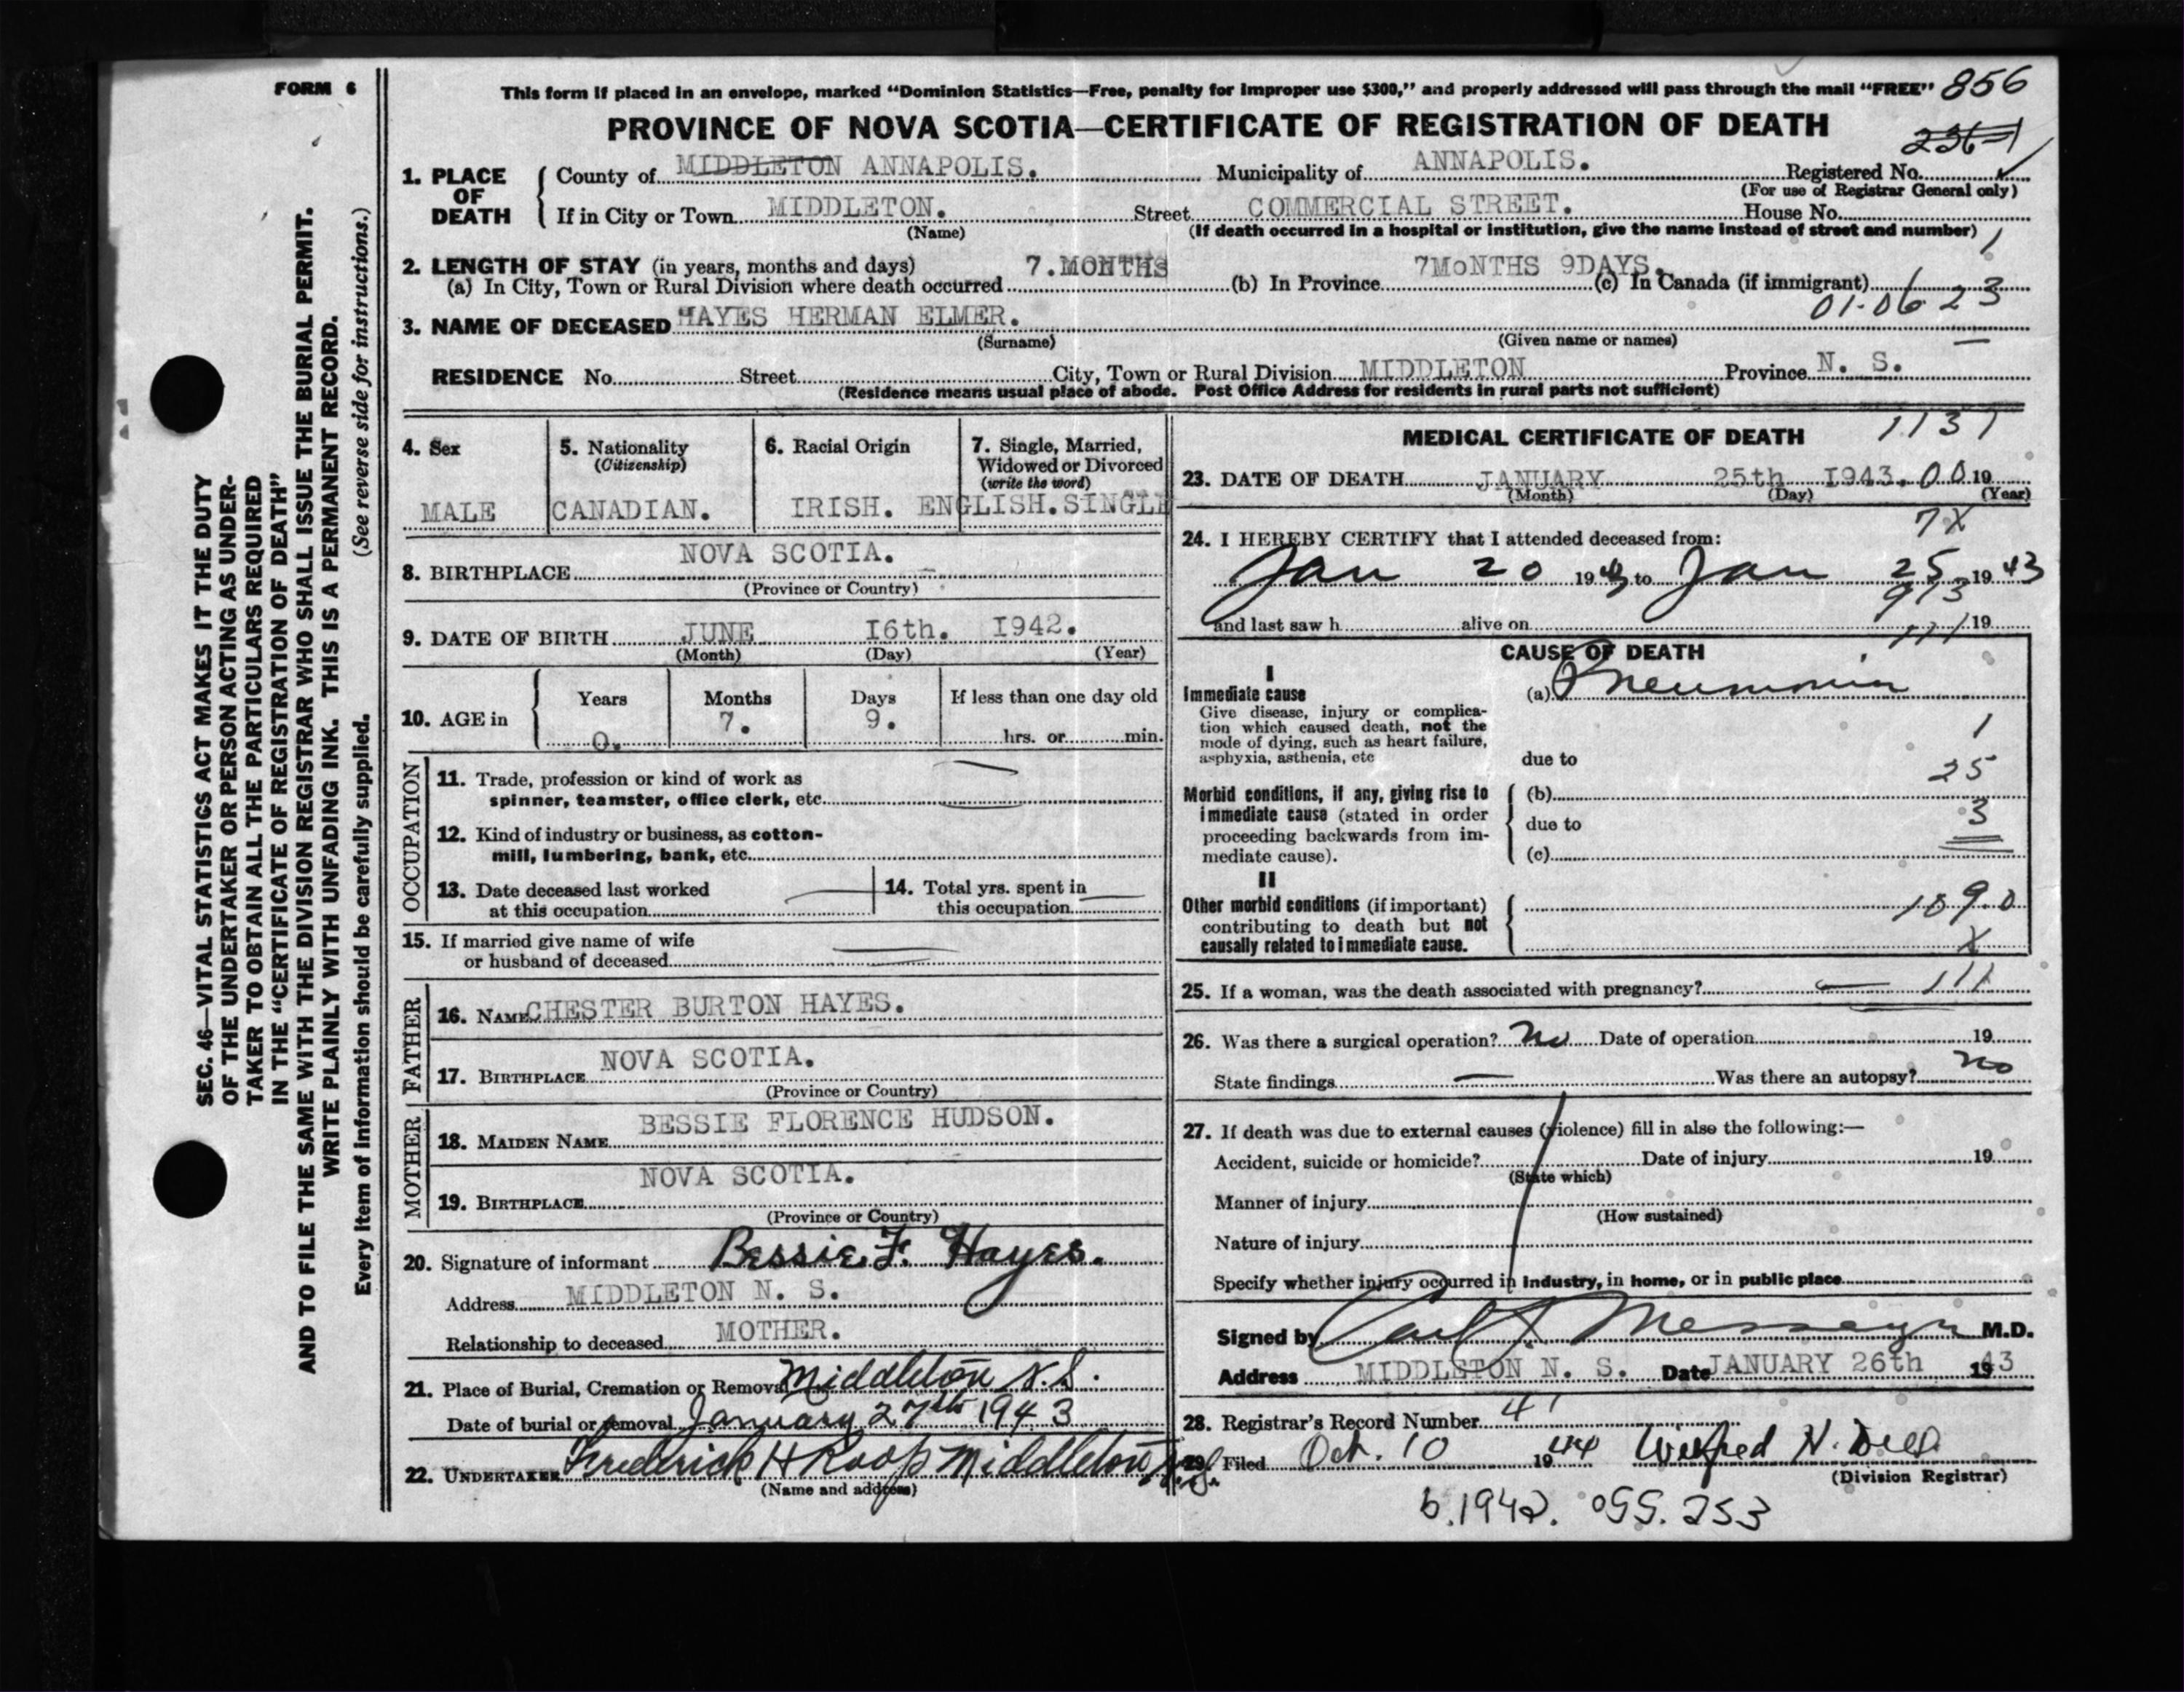 FORM 6
This form if placed in an envelope, marked "Dominion Statistics—Free, penalty for improper use $300," and properly addressed will pass through the mail "FREE" 856
PROVINCE OF NOVA SCOTIA—CERTIFICATE OF REGISTRATION OF DEATH
1. PLACE OF DEATH
County of MIDDLETON ANNAPOLIS. Municipality of ANNAPOLIS. Registered No.
(For use of Registrar General only)
If in City or Town MIDDLETON. Street COMMERCIAL STREET. House No.
(Name) (If death occurred in a hospital or institution, give the name instead of street and number) 1
2. LENGTH OF STAY (in years, months and days)
(a) In City, Town or Rural Division where death occurred 7.MONTHS (b) In Province 7MoNTHS 9DAYS. (c) In Canada (if immigrant)
01-06 23
3. NAME OF DECEASED HAYES HERMAN ELMER.
(Surname) (Given name or names)
RESIDENCE No. Street City, Town or Rural Division MIDDLETON Province N. S.
(Residence means usual place of abode. Post Office Address for residents in rural parts not sufficient)
4. Sex
MALE
5. Nationality
(Citizenship)
CANADIAN.
6. Racial Origin
IRISH. ENGLISH.
7. Single, Married,
Widowed or Divorced
(write the word)
SINGLE
8. BIRTHPLACE NOVA SCOTIA.
(Province or Country)
9. DATE OF BIRTH JUNE I6th. I942.
(Month) (Day) (Year)
10. AGE in
Years Months Days If less than one day old
0. 7. 9. hrs. or min.
OCCUPATION
11. Trade, profession or kind of work as
spinner, teamster, office clerk, etc.
12. Kind of industry or business, as cotton-
mill, lumbering, bank, etc.
13. Date deceased last worked
at this occupation
14. Total yrs. spent in
this occupation
15. If married give name of wife
or husband of deceased
FATHER
16. NAME CHESTER BURTON HAYES.
17. BIRTHPLACE NOVA SCOTIA.
(Province or Country)
MOTHER
18. MAIDEN NAME BESSIE FLORENCE HUDSON.
19. BIRTHPLACE NOVA SCOTIA.
(Province or Country)
20. Signature of informant Bessie F. Hayes.
Address MIDDLETON N. S.
Relationship to deceased MOTHER.
21. Place of Burial, Cremation or Removal Middleton N.S.
Date of burial or removal January 27th 1943
22. UNDERTAKER Frederick H Roop Middleton N.S.
(Name and address)
MEDICAL CERTIFICATE OF DEATH 1131
23. DATE OF DEATH JANUARY 25th I943. 00 19
(Month) (Day) (Year)
7X
24. I HEREBY CERTIFY that I attended deceased from:
Jan 20 1943 to Jan 25 1943
913
and last saw h alive on 19
111
CAUSE OF DEATH
I
Immediate cause
Give disease, injury or complica-
tion which caused death, not the
mode of dying, such as heart failure,
asphyxia, asthenia, etc
(a) Pneumonia
1
due to
25
Morbid conditions, if any, giving rise to
immediate cause (stated in order
proceeding backwards from im-
mediate cause).
(b)
due to 3
(c)
II
Other morbid conditions (if important)
contributing to death but not
causally related to immediate cause.
109.0
X
25. If a woman, was the death associated with pregnancy? — 111
26. Was there a surgical operation? No Date of operation 19
State findings — Was there an autopsy? no
27. If death was due to external causes (violence) fill in also the following:—
Accident, suicide or homicide? Date of injury 19
(State which)
Manner of injury
(How sustained)
Nature of injury
Specify whether injury occurred in industry, in home, or in public place
Signed by M.D.
Address MIDDLETON N. S. Date JANUARY 26th 1943
28. Registrar's Record Number 41
29. Filed Oct. 10 1944 Wilfred H.
(Division Registrar)
b.1942. 253
SEC. 46—VITAL STATISTICS ACT MAKES IT THE DUTY
OF THE UNDERTAKER OR PERSON ACTING AS UNDER-
TAKER TO OBTAIN ALL THE PARTICULARS REQUIRED
IN THE "CERTIFICATE OF REGISTRATION OF DEATH"
AND TO FILE THE SAME WITH THE DIVISION REGISTRAR WHO SHALL ISSUE THE BURIAL PERMIT.
WRITE PLAINLY WITH UNFADING INK. THIS IS A PERMANENT RECORD.
Every item of information should be carefully supplied. (See reverse side for instructions.)